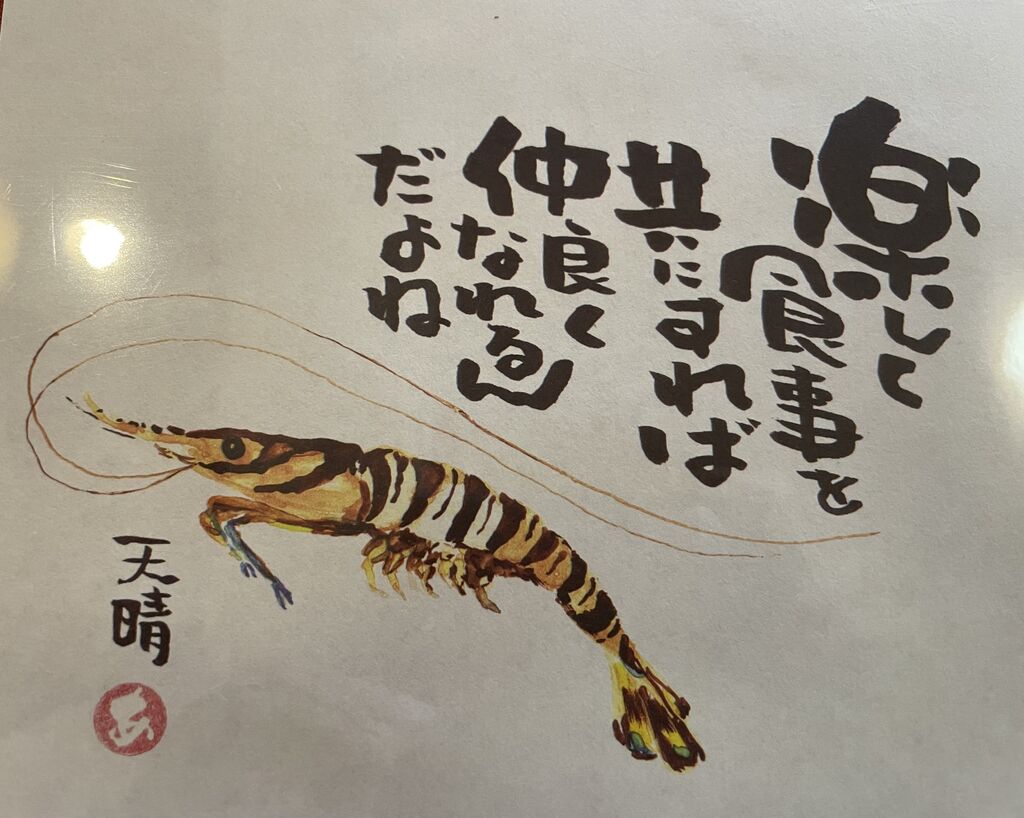 楽しく
食事を
共にすれば
仲良く
なれるん
だよね
天晴